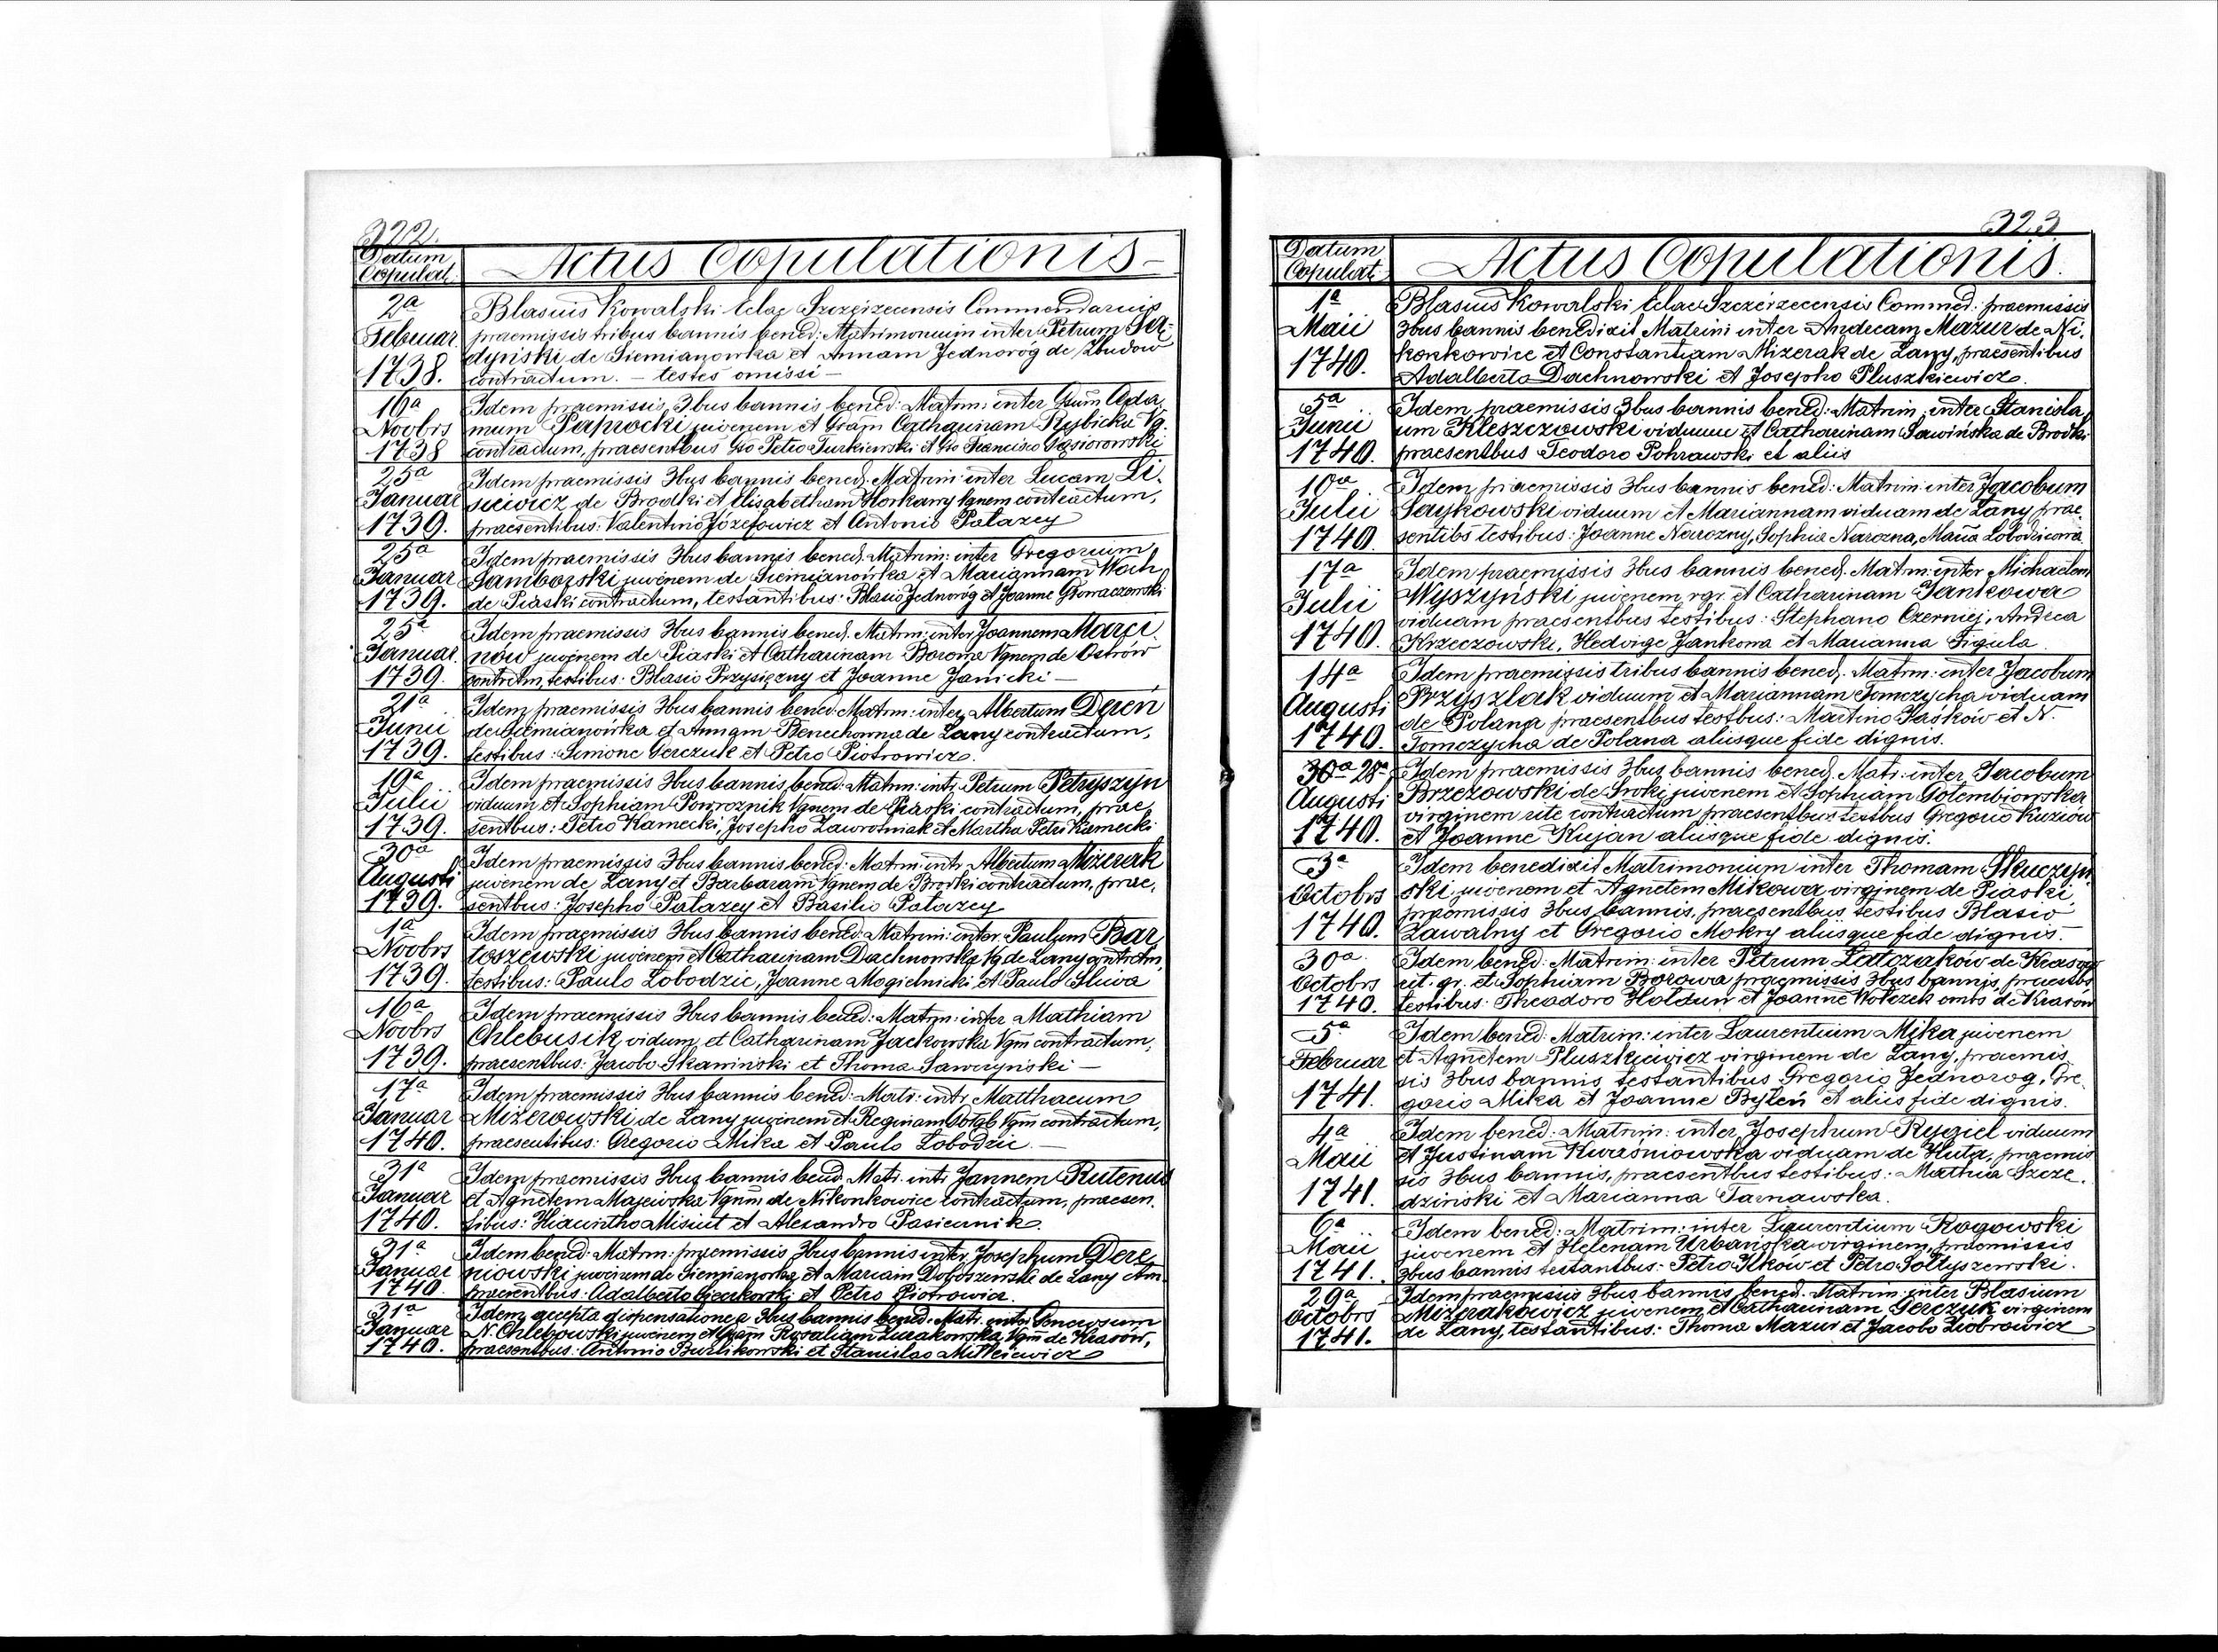 322.
Datum Copulat.
Actus Copulationis
2a Februar 1738.
Blasius Kowalski Eclae Szczeizecensis Commendarius
praemissis tribus bannis bened: Matrimonium inter Petrum
dyński de Siemianowka et Annam Jednoróg de
contractum. — testes omissi —
16a Novbrs 1738
Idem praemissis 3bus bannis bened: Matrm: inter Gsum Ada
mum Paprocki juvenem et Gram Catharinam Rybicka Vg.
contractum, praesentbus Gso Petro Turkiewski et Gso Francisco Gąsiorowski
25a Januar 1739.
Idem praemissis 3bus bannis bened. Matrim: inter Lucam Li-
siewicz de Brodki et Elisabetham Horkawy Vgnem contractum,
praesentibus: Valentino Józefowicz et Antonio Patazey
25a Januar 1739.
Idem praemissis 3bus bannis bened. Matrim: inter Gregorium
Samborski juvenem de Siemianówka et Mariannam Woch
de Piaski contractum, testantibus: Blasio Jednoróg et Joanne Głowaczowski
25a Januar. 1739.
Idem praemissis 3bus bannis bened. Matrm: inter Joannem Marci
now juvenem de Piaski et Catharinam Borowa Vgnem de Ostrów
contrctm, testibus: Blasio Przysiężny et Joanne Janicki —
21a Junii 1739.
Idem praemissis 3bus bannis bened: Matrm: inter Albertum Dereń
de Siemianówka et Annam de Lany contractum,
testibus: Simone Gerczuk et Petro Piotrowicz.
19a Julii 1739.
Idem praemissis 3bus bannis bened: Matrm: intr Petrum Petryszyn
viduum et Sophiam Powroznik Vgnem de Piaski contractum, prae,
sentbus: Petro Kamecki, Josepho Zawrotniak et Martha Petri Kamecki
30a Augusti 1739.
Idem praemissis 3bus bannis bened: Matrm: intr Albertum Mizerak
juvenem de Lany et Barbaram Vgnem de Brodki contractum, prae,
sentbus: Josepho Patazey et Basilio Patazey
1a Novbrs 1739.
Idem praemissis 3bus bannis bened: Matrim: inter Paulum Bar
toszewski juvenem et Catharinam Dachnowska Vg de Lany contrctm,
testibus: Paulo Lobodzic, Joanne Mogielnicki et Paulo Sliwa
16a Novbrs 1739.
Idem praemissis 3bus bannis bened: Matrm: inter Mathiam
Chlebusik, vidum et Catharinam Jackowska Vgm contractum,
praesentbus: Jacobo Skawinski et Thoma Sawczyński —
17a Januar 1740.
Idem praemissis 3bus bannis bened: Matr: intr Matthaeum
Mizerowski de Lany juvenem et Reginam Vgm contractum,
praesentibus: Gregorio Mika et Paulo Lobodzic —
31a Januar 1740.
Idem praemissis 3bus bannis bend. Matr: intr Jannem Rutenus
et Agnetem Majewska Vgnm de Nikonkowice contractum, praesen.
tibus: Hiacintho Misiut et Alexandro Pasiecznik.
31a Januar 1740.
Idem bened: Matrm: praemissis 3bus bannis inter Josephum Dere
niowski juvenem de Siemianowka et Mariam Doboszewska de Lany
praesentbus: Adalberto et Petro Piotrowicz.
31a Januar 1740.
Idem accepta dispensatione a 3bus bannis bened. Matr. inter Generosum
N. Chlebowski juvenem et Gram Rosaliam Zurakowska Vgm de Krasów,
praesentbus: Antonio Burlikowski et Stanislao Mitkiewicz
323
Datum Copulat.
Actus Copulationis.
1a Maii 1740.
Blasius Kowalski Eclae Szczeirzecensis Commed: praemissis
3bus bannis benedixit Matrim inter Andream Mazur de Ni,
konkowice et Constantiam Mizerak de Lany, praesentibus
Adalberto Dachnowski et Josepho Pluszkiewicz.
5a Junii 1740.
Idem praemissis 3bus bannis bened: Matrim: inter Stanisla
um Kleszczowski viduum et Catharinam Sawińska de Brodki
praesentbus Teodoro Pohrawski et aliis
10a Julii 1740.
Idem praemissis 3bus bannis bened: Matrim: inter Jacobum
Saykowski viduum et Mariannam viduam de Lany prae
sentibs testibus: Joanne Narozny, Sophia Narozna, Maria Lobodzicowa
17a Julii 1740.
Idem praemissis 3bus bannis bened. Matrm: inter Michaelem
Wyszyński juvenem rgr. et Catharinam Jankowa
viduam praesentbus testibus: Stephano Czerniej, Andrea
Krzeczowski, Hedvige Jankowa et Marianna Figula.
14a Augusti 1740.
Idem praemissis tribus bannis bened. Matrm: inter Jacobum
Przyszlak viduum et Mariannam Tomczycha viduam
de Polana praesentbus testbus: Martino Jaśków et N.
Tomczycha de Polana aliisque fide dignis.
30a 28a Augusti 1740.
Idem praemissis 3bus bannis bened. Matr: inter Jacobum
Brzezowski de Sroki juvenem et Sophiam Gołembiowska
virginem rite contractum praesentbus testbus Gregorio Kuziow
et Joanne Kujan aliisque fide dignis.
3a Octobrs 1740.
Idem benedixit Matrimonium inter Thomam Skuczyń
ski juvenem et Agnetem Mikowa virginem de Piaski,
praemissis 3bus bannis, praesentbus testibus Blasio
Zawalny et Gregorio Mokry aliisque fide dignis.
30a Octobrs 1740.
Idem bened: Matrim: inter Petrum Latczaków de Krasów
rit. gr. et Sophiam Borowa praemissis 3bus bannis, praestbs
testibus: Theodoro Hołdun et Joanne Wołczek ombs de Krasów
5a Februar 1741.
Idem bened: Matrim: inter Laurentium Mika juvenem
et Agnetem Pluszkiewicz virginem de Lany, praemis
sis 3bus bannis testantibus Gregorio Jednorog, Gre
gorio Mika et Joanne Byleń et aliis fide dignis.
4a Maii 1741.
Idem bened: Matrim: inter Josephum Rygiel viduum
et Justinam Kwaśniowska viduam de Huta, praemis
sis 3bus bannis, praesentbus testibus: Mathia Szcze,
dzinski et Marianna Tarnawska.
6a Maii 1741.
Idem bened: Matrim: inter Laurentium Rogowski
juvenem et Helenam Urbańska virginem, praemissis
3bus bannis testantbus: Petro Ilków et Petro Sołtyszewski.
29a Octobrs 1741.
Idem praemissis 3bus bannis bened. Matrim: inter Blasium
Mizerakowicz juvenem et Catharinam Gerczuk virginem
de Lany, testantibus: Thoma Mazur et Jacobo Ziobrowicz